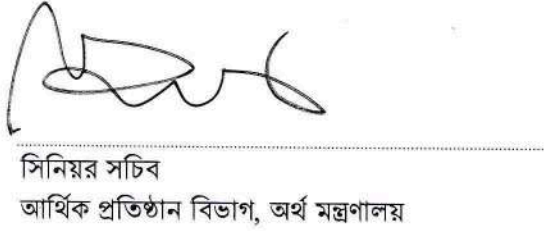 সিনিয়র সচিব
আর্থিক প্রতিষ্ঠান বিভাগ, অর্থ মন্ত্রণালয়